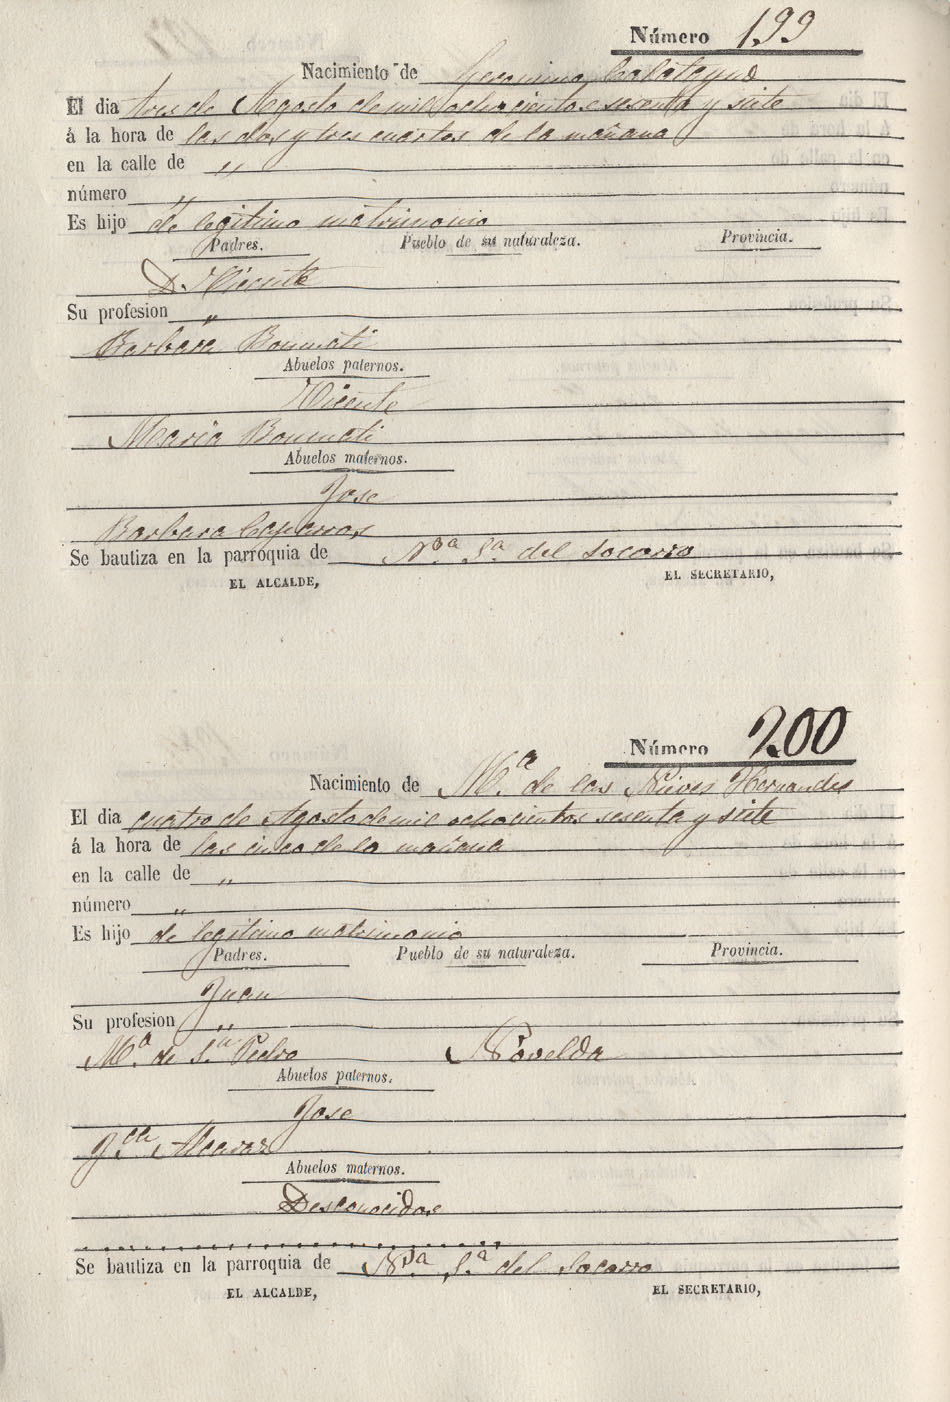 Número 199
Nacimiento de Geronimo Calatayud
El dia tres de Agosto de mil ochocientos sesenta y siete
á la hora de las dos y tres cuartos de la mañana
en la calle de "
número "
Es hijo de legitimo matrimonio
Padres. Pueblo de su naturaleza. Provincia.
D. Vicente
Su profesion "
Barbara Bonmati
Abuelos paternos.
Vicente
Maria Bonmati
Abuelos maternos.
Jose
Barbara Caparros
Se bautiza en la parroquia de Nra. Sa. del Socorro
EL ALCALDE, EL SECRETARIO,
Número 200
Nacimiento de Ma. de las Nieves Hernandes
El dia cuatro de Agosto de mil ochocientos sesenta y siete
á la hora de las cinco de la mañana
en la calle de "
número "
Es hijo de legitimo matrimonio
Padres. Pueblo de su naturaleza. Provincia.
Juan
Su profesion "
Ma. de Sn. Pedro Novelda
Abuelos paternos.
Jose
Alcaraz
Abuelos maternos.
Desconocidos
Se bautiza en la parroquia de Nra Sa. del Socorro
EL ALCALDE, EL SECRETARIO,